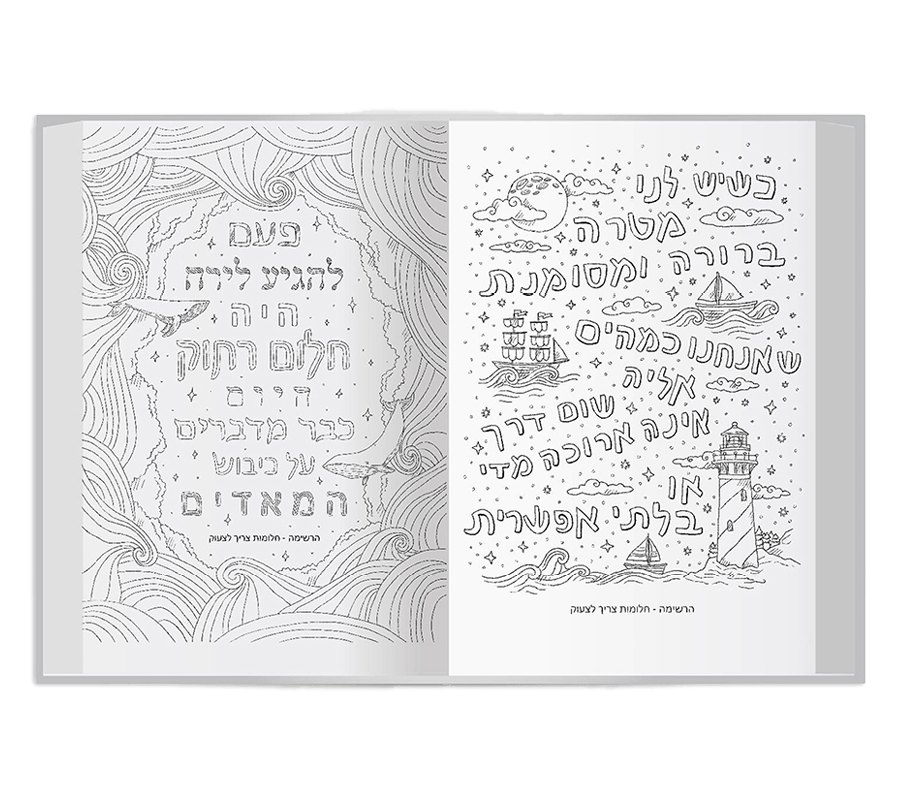 כשיש לנו
מטרה
ברורה ומסומנת
שאנחנו כמהים
אליה
שום דרך
אינה ארוכה מדי
או
בלתי אפשרית
הרשימה - חלומות צריך לצעוק
פעם
להגיע לירח
היה
חלום רחוק
היום
כבר מדברים
על כיבוש
המאדים
הרשימה - חלומות צריך לצעוק